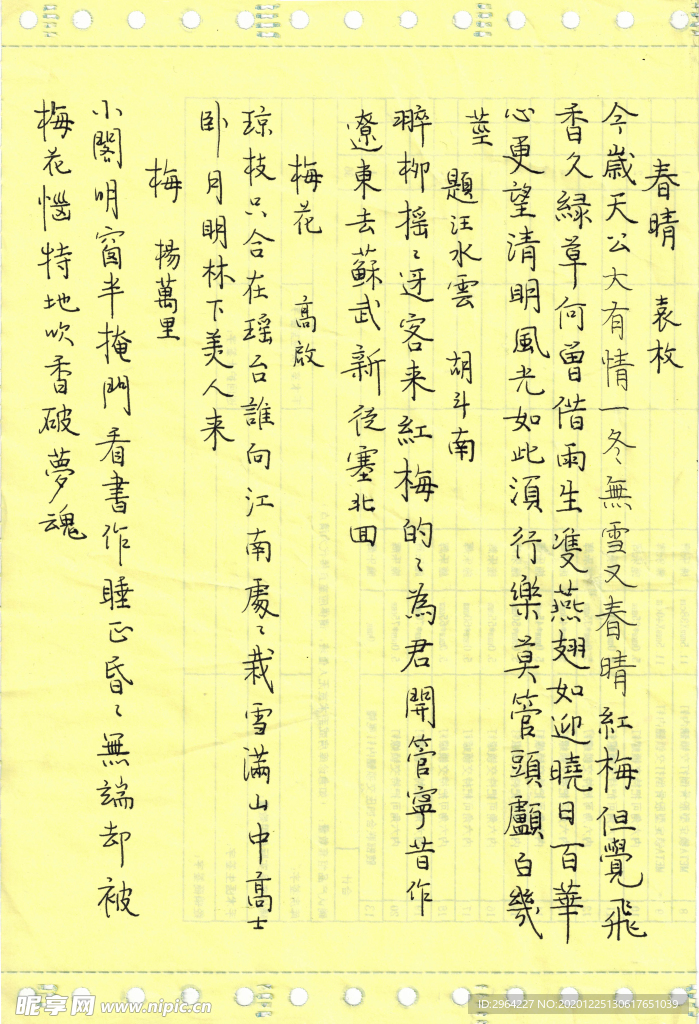 春晴 袁枚
今歲天公大有情一冬無雪又春晴紅梅但覺飛
香久綠草何曾借雨生雙燕翅如迎曉日百華
心更望清明風光如此須行樂莫管頭顱白幾
莖
題汪水雲 胡斗南
翠柳搖〻迓客來紅梅的〻為君開管寧昔作
遼東去蘇武新從塞北回
梅花 高啟
琼枝只合在瑶台誰向江南處〻栽雪滿山中高士
卧月明林下美人来
梅 楊萬里
小閣明窗半掩門看書作睡正昏〻無端却被
梅花惱特地吹香破夢魂
昵享网 www.nipic.cn
ID:2964227 NO:20201225130617651039